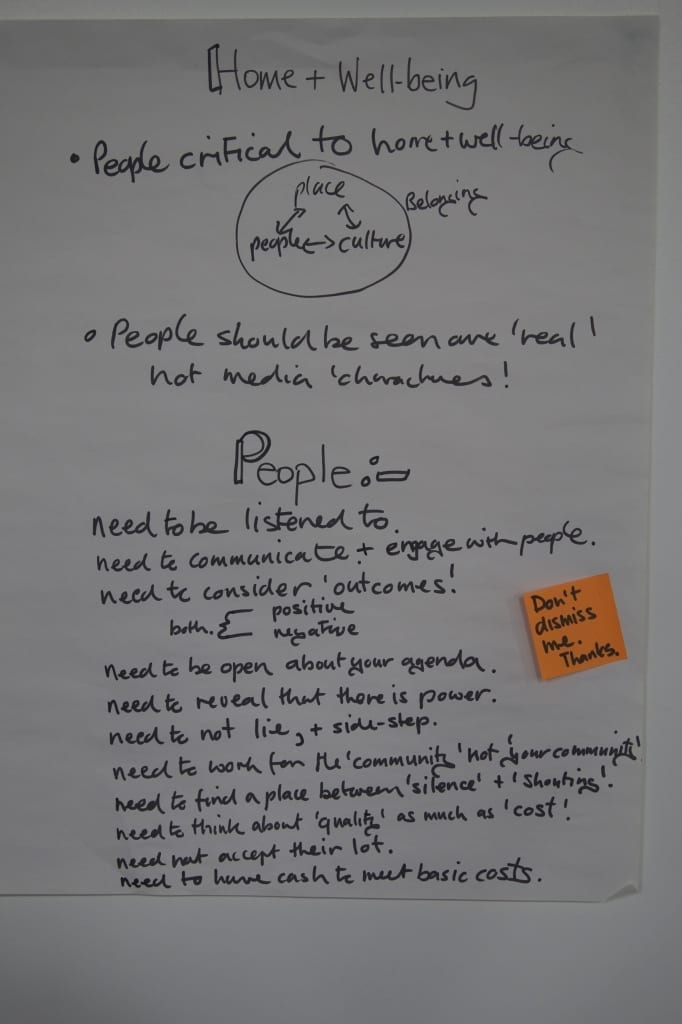 Home + Well-being
• People critical to home + well-being
place
Belonging
people ↔ culture
• People should be seen are 'real'
not media 'charactures!
People:-
need to be listened to.
need to communicate + engage with people.
need to consider 'outcomes!
both. { positive
negative
Don't
dismiss
me.
Thanks.
need to be open about your agenda.
need to reveal that there is power.
need to not lie, + side-step.
need to work for the 'community' not 'your community'
need to find a place between 'silence' + 'shouting'.
need to think about 'quality' as much as 'cost!
need not accept their lot.
need to have cash to meet basic costs.